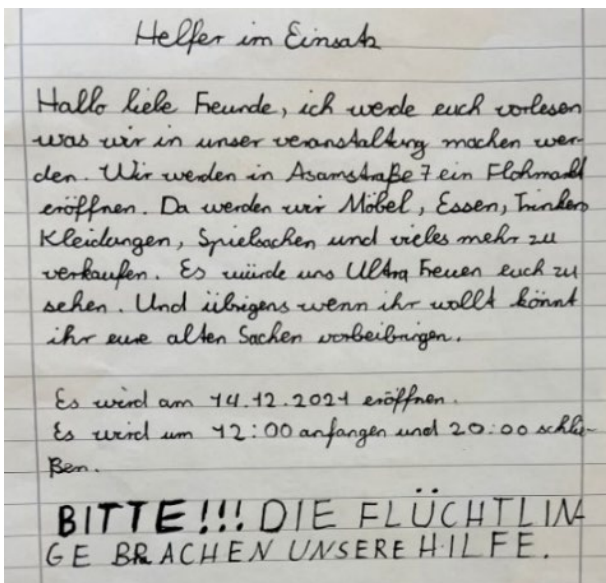 Helfer im Einsatz
Hallo liebe Freunde, ich werde euch vorlesen
was wir in unser veranstaltung machen wer-
den. Wir werden in Asamstraße 7 ein Flohmarkt
eröffnen. Da werden wir Möbel, Essen, Trinken,
Kleidungen, Spielsachen und vieles mehr zu
verkaufen. Es würde uns Ultra Freuen euch zu
sehen. Und übrigens wenn ihr wollt könnt
ihr eure alten Sachen vorbeibringen.
Es wird am 14.12.2021 eröffnen.
Es wird um 12:00 anfangen und 20:00 schlie-
ßen.
BITTE!!! DIE FLÜCHTLIN-
GE BRACHEN UNSERE HILFE.